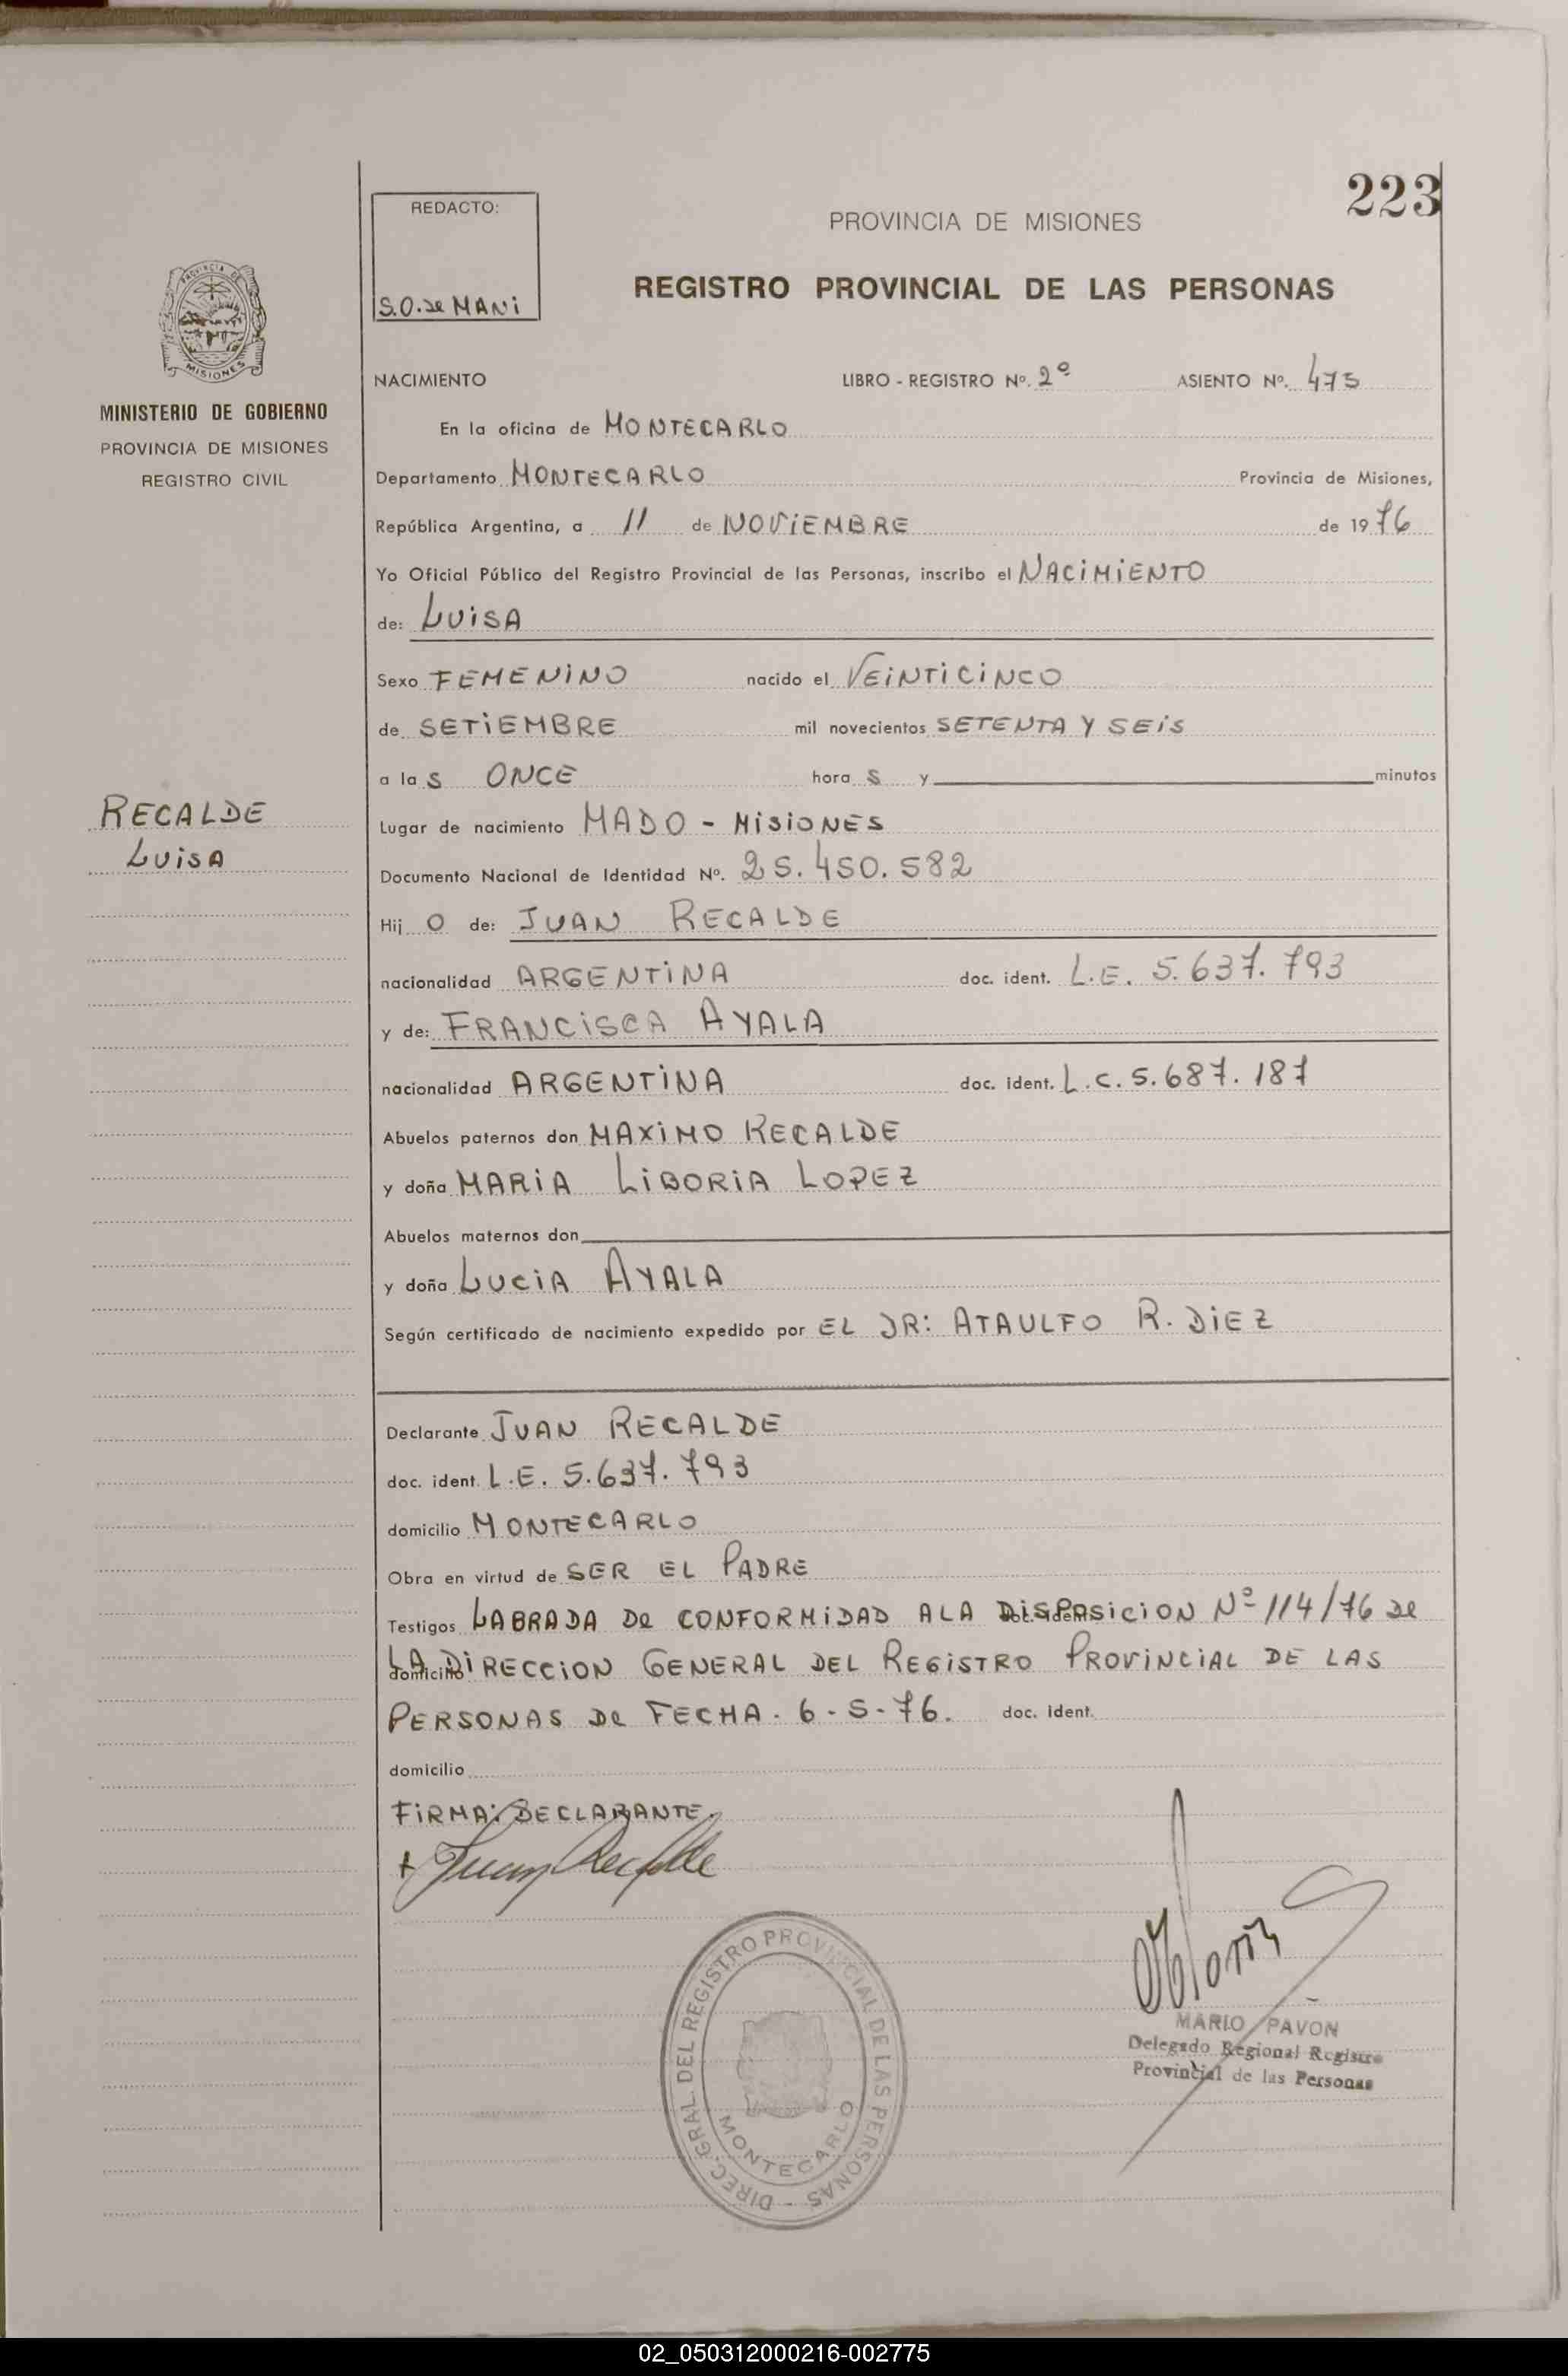 223
REDACTO:
S.O. de MANI
PROVINCIA DE MISIONES
REGISTRO PROVINCIAL DE LAS PERSONAS
PROVINCIA DE MISIONES
MINISTERIO DE GOBIERNO
PROVINCIA DE MISIONES
REGISTRO CIVIL
RECALDE
LUISA
NACIMIENTO LIBRO - REGISTRO Nº. 2º ASIENTO Nº. 475
En la oficina de MONTECARLO
Departamento MONTECARLO Provincia de Misiones,
República Argentina, a 11 de NOVIEMBRE de 1976
Yo Oficial Público del Registro Provincial de las Personas, inscribo el NACIMIENTO
de: LUISA
Sexo FEMENINO nacido el VEINTICINCO
de SETIEMBRE mil novecientos SETENTA Y SEIS
a las ONCE horas y minutos
Lugar de nacimiento MADO - MISIONES
Documento Nacional de Identidad Nº. 25.450.582
Hij O de: JUAN RECALDE
nacionalidad ARGENTINA doc. ident. L.E. 5.637.793
y de: FRANCISCA AYALA
nacionalidad ARGENTINA doc. ident. L.C. 5.687.187
Abuelos paternos don MAXIMO RECALDE
y doña MARIA LIBORIA LOPEZ
Abuelos maternos don
y doña LUCIA AYALA
Según certificado de nacimiento expedido por EL DR: ATAULFO R. DIEZ
Declarante JUAN RECALDE
doc. ident. L.E. 5.637.793
domicilio MONTECARLO
Obra en virtud de SER EL PADRE
Testigos LABRADA De CONFORMIDAD A LA DISPOSICION Nº 114/76 de
domicilio LA DIRECCION GENERAL DEL REGISTRO PROVINCIAL DE LAS
PERSONAS De FECHA. 6-5-76. doc. ident.
domicilio
FIRMA: DECLARANTE.
+ Juan Recalde
DIREC. GRAL. DEL REGISTRO PROVINCIAL DE LAS PERSONAS -
MONTECARLO
MARIO PAVON
Delegado Regional Registro
Provincial de las Personas
02_050312000216-002775